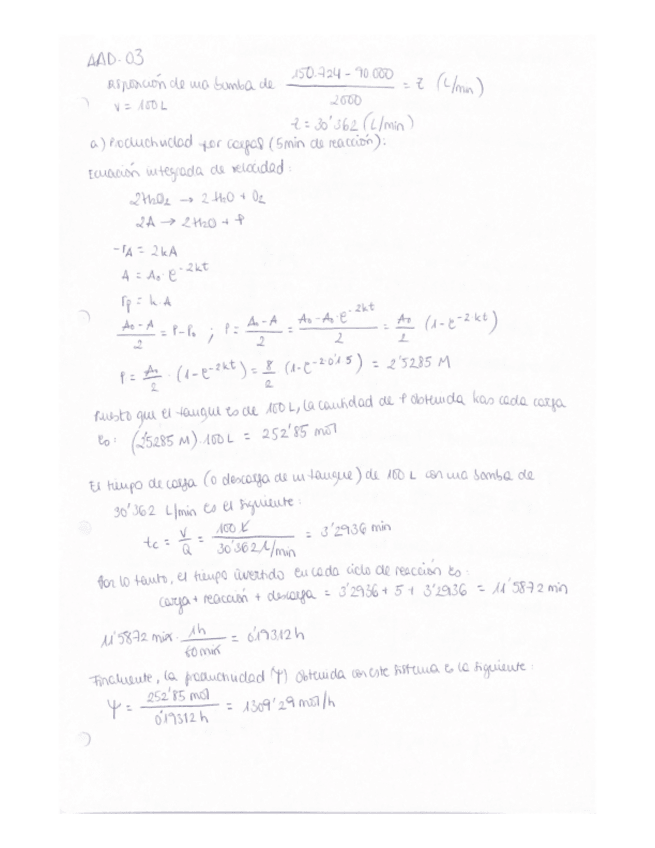 AAD-03
Disposición de una bomba de (150.724 - 90.000) / 2000 = z (L/min)
V = 100 L
z = 30'362 (L/min)
a) Productividad por cargas (5 min de reacción):
Ecuación integrada de velocidad:
2H₂O₂ → 2H₂O + O₂
2A → 2H₂O + P
-r_A = 2kA
A = A₀ · e^(-2kt)
r_p = k·A
(A₀ - A) / 2 = P - P₀ ; P = (A₀ - A) / 2 = (A₀ - A₀·e^(-2kt)) / 2 = A₀/2 (1 - e^(-2kt))
P = A₀/2 · (1 - e^(-2kt)) = 8/2 (1 - e^(-2·0'1·5)) = 2'5285 M
Puesto que el tanque es de 100 L, la cantidad de P obtenida tras cada carga
es: (2'5285 M) · 100 L = 252'85 mol
El tiempo de carga (o descarga de un tanque) de 100 L con una bomba de
30'362 L/min es el siguiente:
t_c = V/Q = 100 L / 30'362 L/min = 3'2936 min
Por lo tanto, el tiempo invertido en cada ciclo de reacción es:
carga + reacción + descarga = 3'2936 + 5 + 3'2936 = 11'5872 min
11'5872 min · 1h / 60 min = 0'19312 h
Finalmente, la productividad (Ψ) obtenida con este sistema es la siguiente:
Ψ = 252'85 mol / 0'19312 h = 1309'29 mol/h